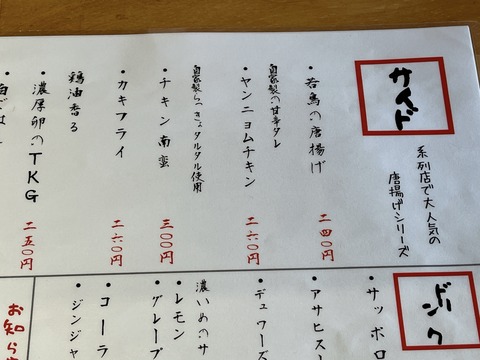 サイド
系列店で大人気の
唐揚げシリーズ
・若鳥の唐揚げ 二四〇円
自家製の甘辛タレ
・ヤンニョムチキン 二六〇円
自家製らっきょタルタル使用
・チキン南蛮 三〇〇円
・カキフライ 二六〇円
鶏油香る
・濃厚卵のTKG 二五〇円
ドリンク
・サッポロ
・アサヒス
・デュワーズ
濃いめのサ
・レモン
・グレープ
・コーラ
・ジンジャ
お知ら